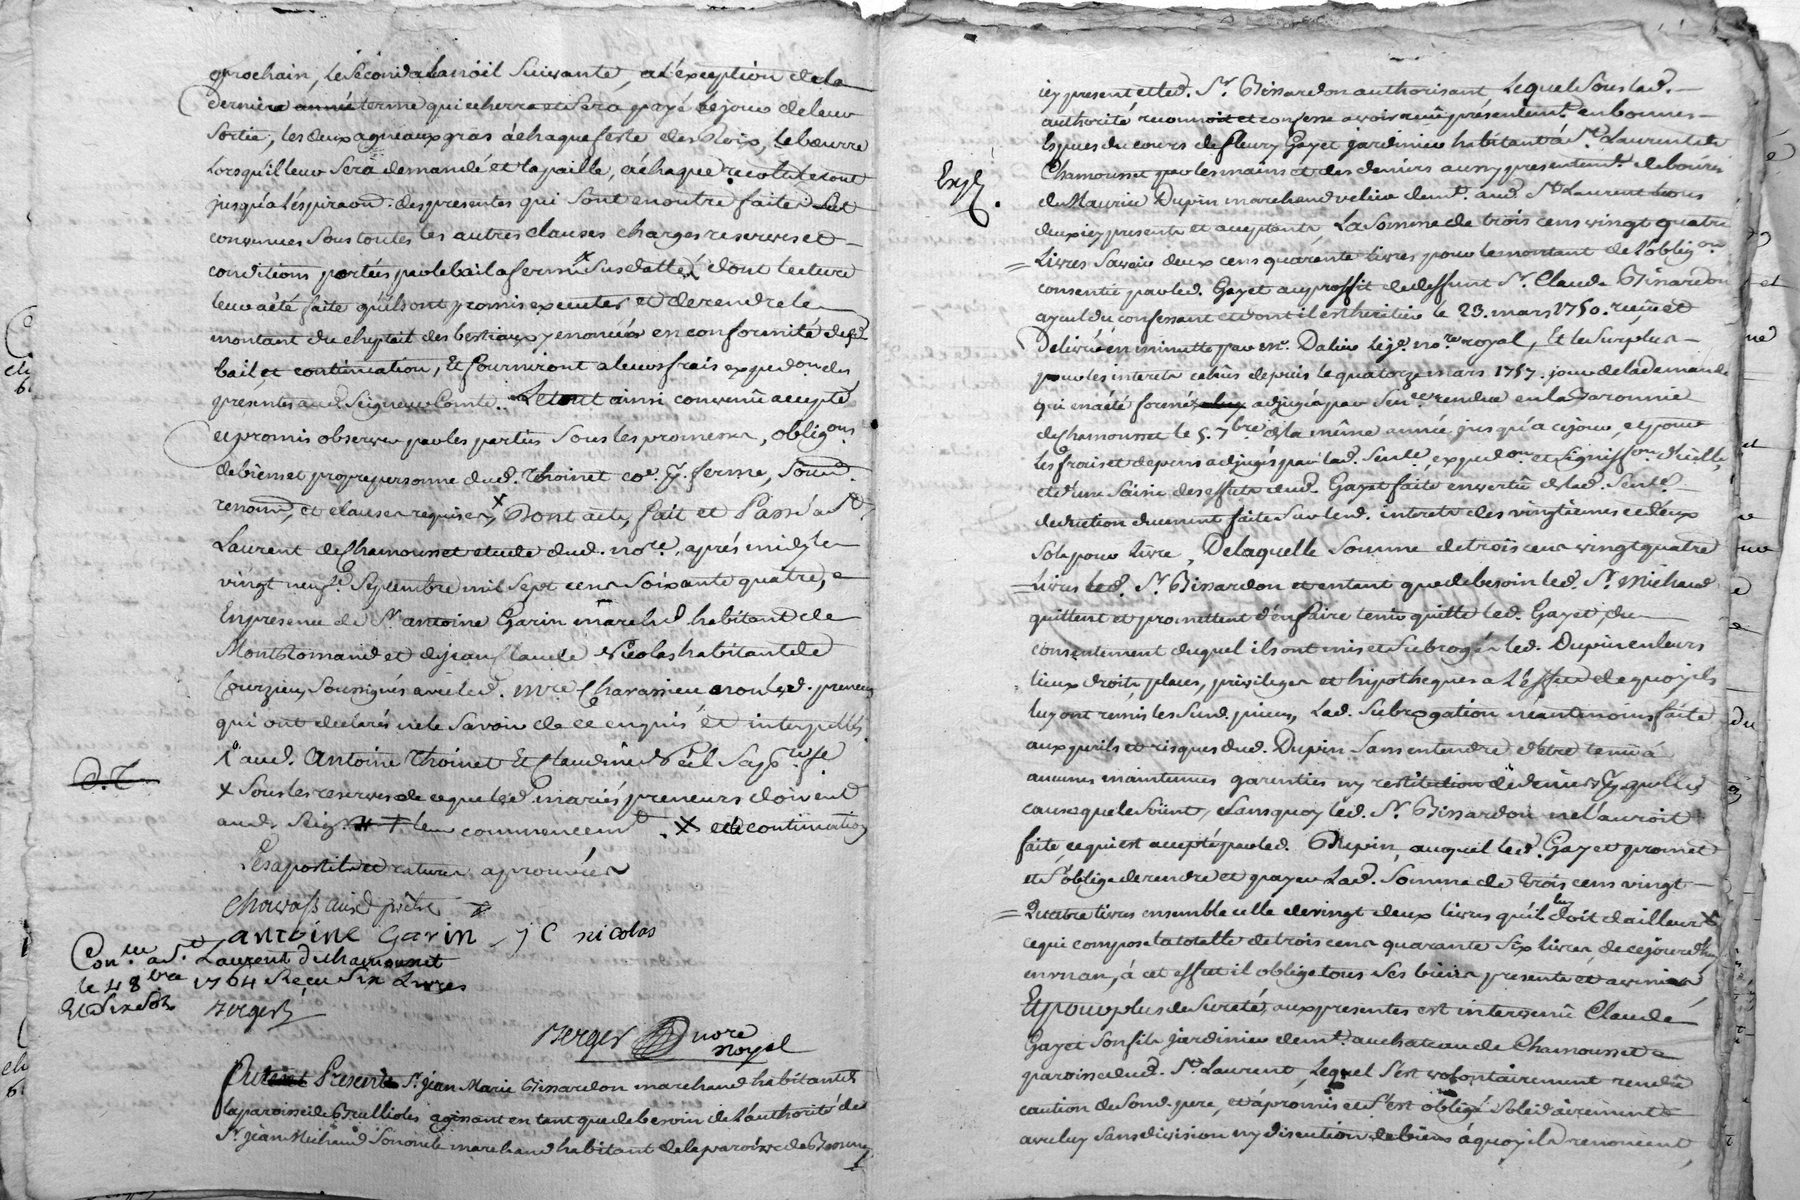 prochain, le second a la noël suivante, a l'exception de la
derniere année terme qui echerra et sera payé le jour de leur
sortie, les deux agneaux gras á chaque feste des Roix, le beurre
lorsqu'il leur sera demandé et la paille, á chaque recolte
jusqu'a l'expiraon. des presentes qui sont en outre faites et
convenues sous toutes les autres clauses charges reserves et
conditions portées par le bail a ferme susdatté x dont lecture
leur a été faite qu'ils ont promis executer et de rendre le
montant du cheptail des bestiaux y enoncés en conformité dud.
bail et continuation, Et fourniront a leurs frais expedon. des
presentes aud. Seigneur Comte. Le tout ainsi convenû accepté
et promis observer par les parties sous les promesses, obligons.
de biens et propre personne dud. Thoinet co.e p.r ferme, soumd.
renond, et clauses requises x Dont acte, fait et Passé a St.
Laurent de Chamousset etude dud. nore. aprés midy le
vingt neuf.e Septembre mil sept cens soixante quatre, e
En presence de Sr. antoine Garin marchd habitant de
Montromand et de jean Claude Nicolas habitant de
Courzieu, soussignés avec led. mre. Chavassieu non lesd. preneurs
qui ont declarés ne le savoir de ce enquis et interpellés
aud. Antoine Thoinet Et Claudine
x Sous les reserves de ce que lesd. mariés preneurs doivent
aud. Seigr. leur commencemt. x et de continuation
D.T.
Les apostils et ratures aprouvées
antoine Garin j C nicolas
Con.lle a St. Laurent de chamousset
le 4 8bre 1764 Reçu Six Livres
Et Six Sols Berger
Berger nore
royal
Présent Sr. jean Marie Bissardon marchand habitant de
la paroisse de Brullioles agissant en tant que de besoin de l'authorité de
Sr. jean Michaud son oncle marchand habitant de la paroisse de
icy present et led. Sr. Bissardon authorisant Lequel sous lad.
authorité reconnoit et confesse avoir reçu présentemt. en bonnes
Especes du cours de fleury Gayet jardinier habitant á St. Laurent de
Expé.
Chamousset par les mains et des deniers aussy presentemt. debourcés
de Maurice Dupin marchand velier demt. aud. St. Laurent tous
deux icy presents et acceptants, La somme de trois cens vingt quatre
Livres Savoir deux cens quarante livres pour le montant de l'obligon
consentie par led. Gayet au proffit de deffunt Sr. Claude Bissardon
ayeul du confessant et dont il est heritier le 23. mars 1750. reçue et
Delivrée en minutte par me. Dalier lejt. nore royal, Et le Surplus
pour les interets echûs depuis le quatorze mars 1757. jour de la demande
qui en a été formée adjugés par Sence rendue en la Baronnie
de Chamousset le 5. 7bre de la même année jusqu'a ce jour, et pour
les frais et depens adjugés par lad. Sente. expedon et signiffon d'icelle,
et d'une saisie des effets dud. Gayet faite en vertû de lad. Sente.
deduction duement faite sur lesd. interets des vingtiemes et deux
sols pour Livre, De laquelle somme de trois cens vingt quatre
Livres led. Sr. Bissardon et en tant que de besoin led. Sr. Michaud
quittent et promettent d'en faire tenir quitte led. Gayet, du
consentement duquel ils ont mis et subrogés led. Dupin en leurs
lieux droits places, privileges et hipotheques a l'effet de quoy ils
luy ont remis les susd. pieces, Lad. subrogation néantmoins faite
aux perils et risques dud. Dupin sans entendre d'etre tenû á
aucunes maintenues garenties ny restitution de deniers pr. quelles
causes que le soint, sans quoy led. Sr. Bissardon ne l'auroit
faite, ce qui est accepté par led. Dupin, auquel led. Gayet promet
et s'oblige de rendre et payer Lad. somme de trois cens vingt
Quatre livres ensemble celle de vingt deux livres qu'il luy doit d'ailleurs
ce qui compose la totalle de trois cens quarante six livres, de ce jourd'huy
en un an, á cet effet il oblige tous ses biens presents et avenirs
Et pour plus de sureté aux presentes est intervenû Claude
Gayet son fils jardinier demt. au chateau de Chamousset
paroisse dud. St. Laurent, Lequel s'est volontairement rendû
caution de son d. pere, et a promis et s'est obligé solidairement
avec luy sans division ny discution de biens á quoy ils renoncent,